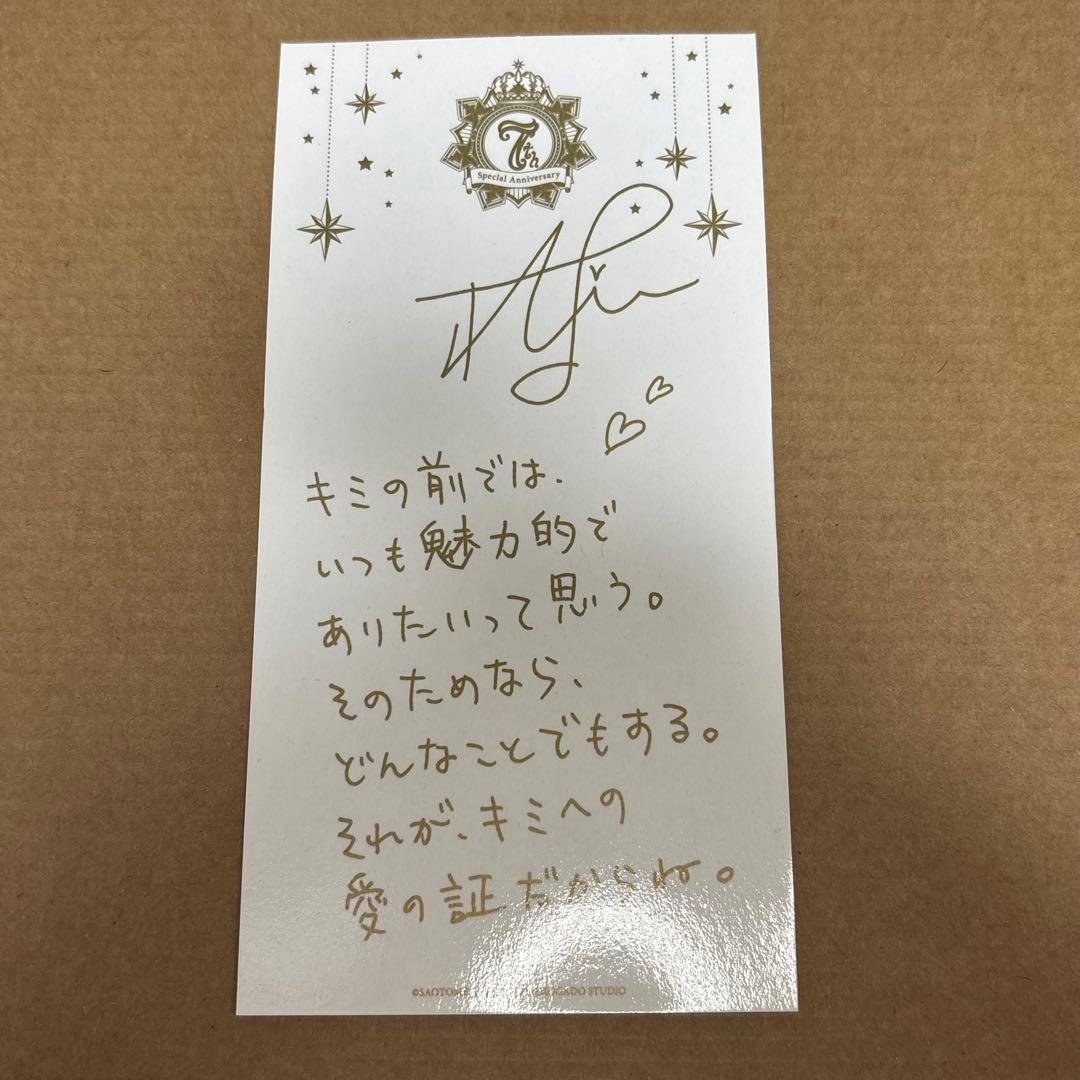 7th
Special Anniversary
キミの前では、
いつも魅力的で
ありたいって思う。
そのためなら、
どんなことでもする。
それが、キミへの
愛の証だからね。
©SAOTOME STUDIO